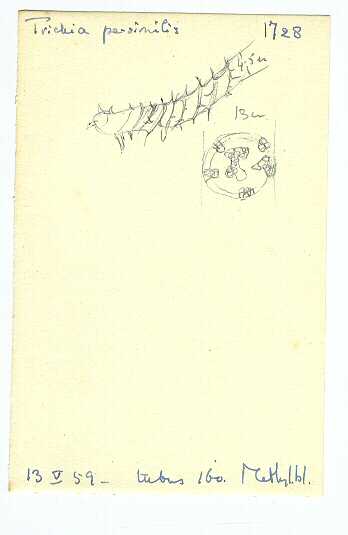 Trichia persimilis 1728
4,5 u
13 u
13 V 59 - tubus 160. Methyl.bl.